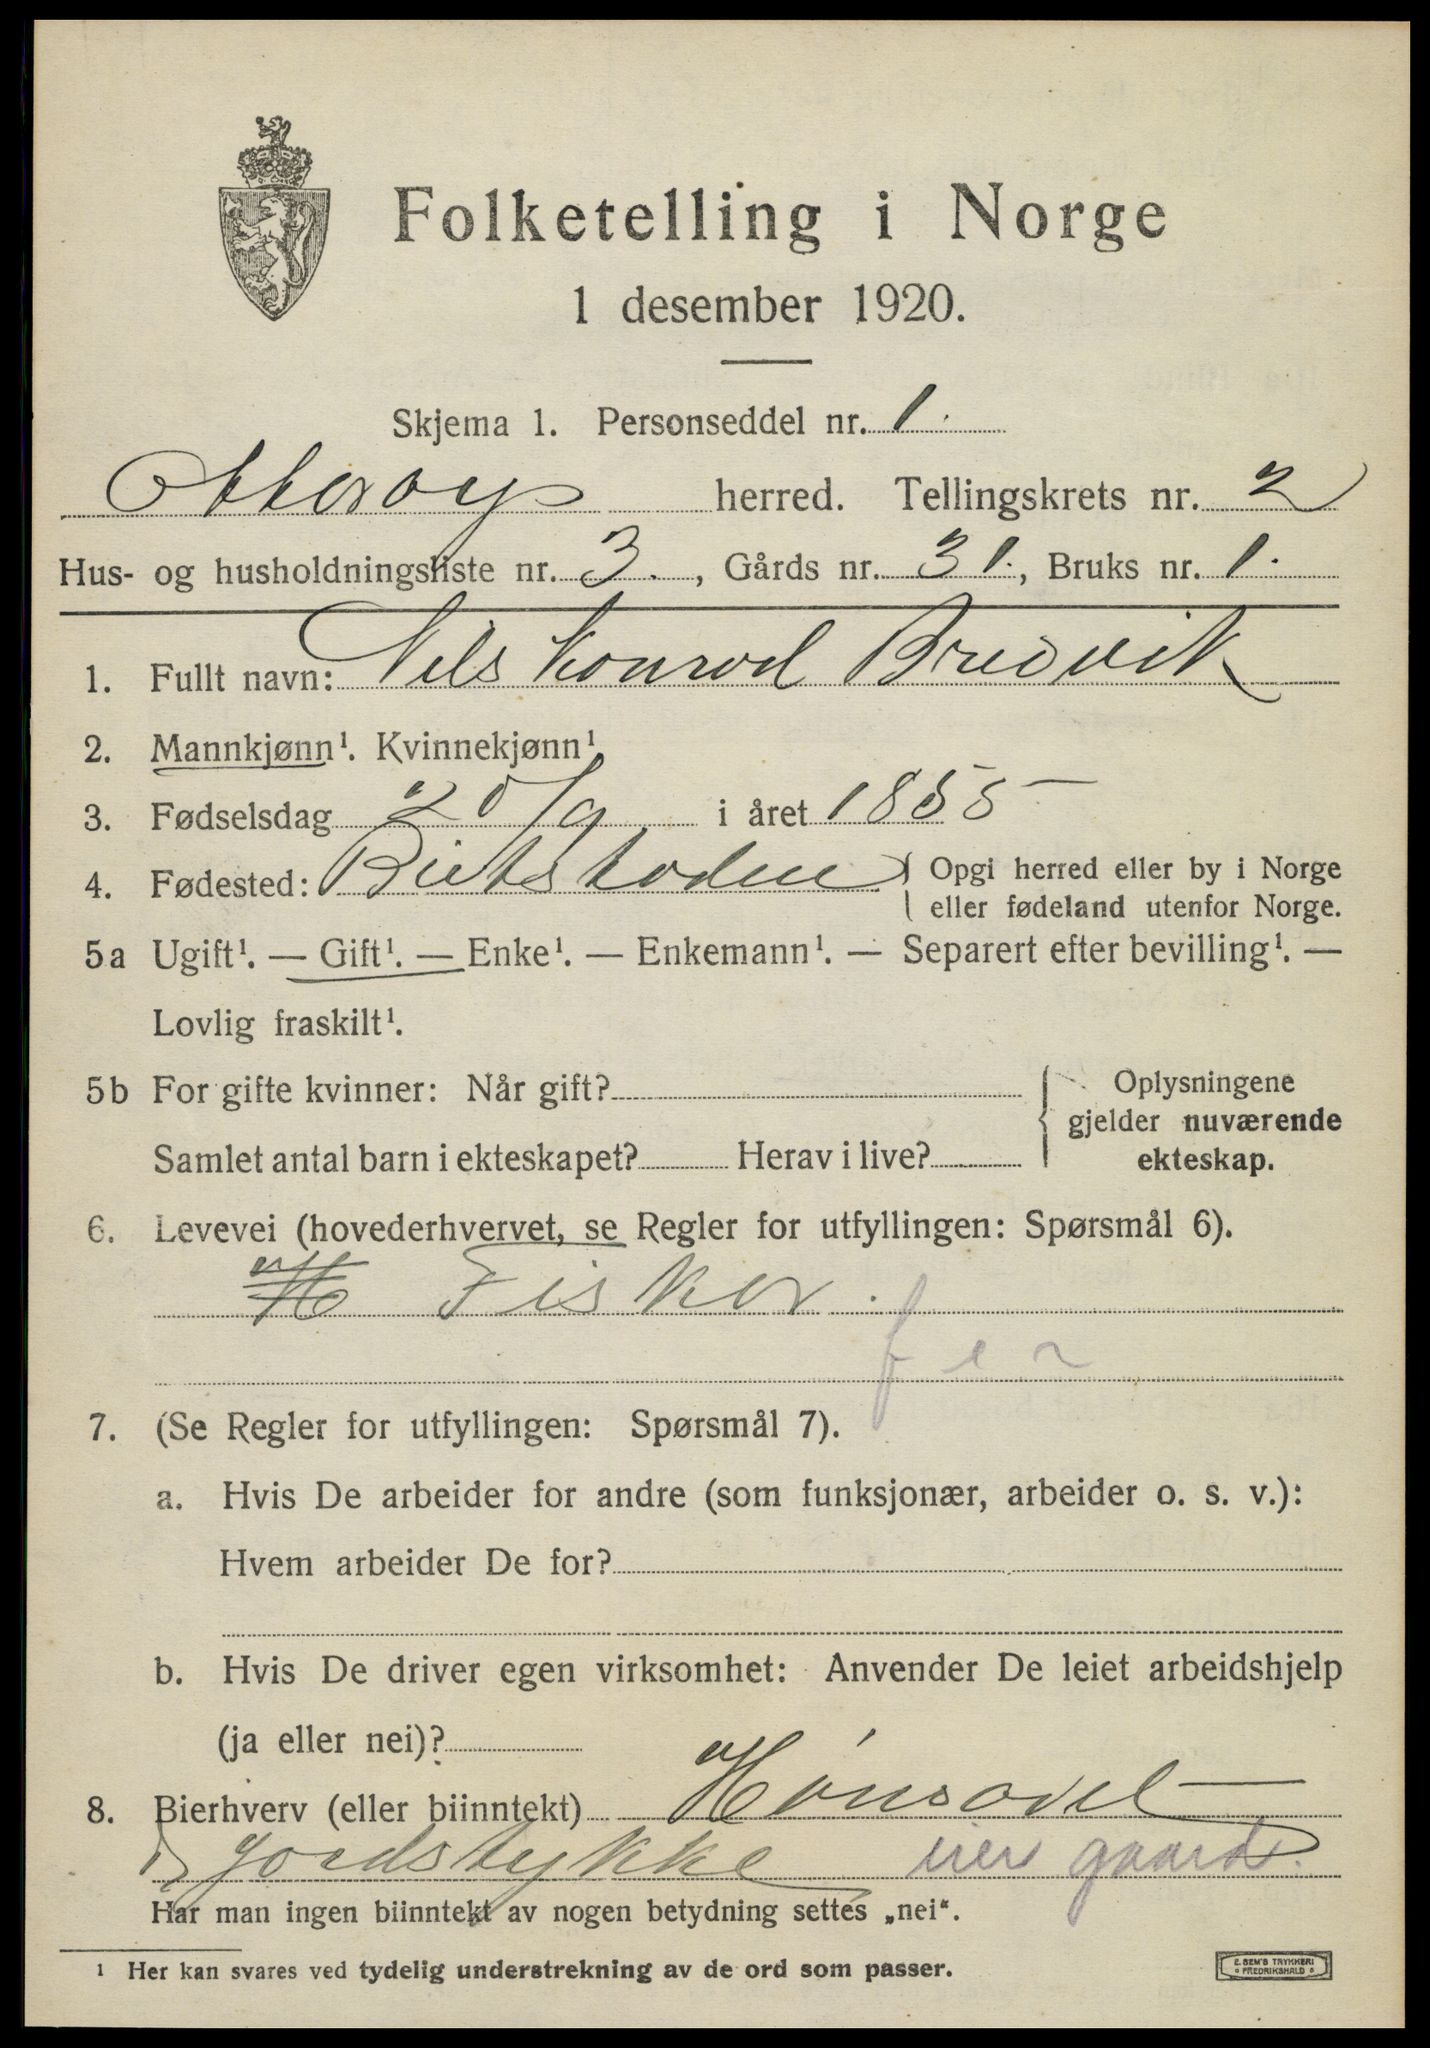 Folketelling i Norge
1 desember 1920.
Skjema 1. Personseddel nr. 1.
Otterøy herred. Tellingskrets nr. 2
Hus- og husholdningsliste nr. 3., Gårds nr. 31., Bruks nr. 1.
1. Fullt navn: Nils Konrad Bredvik
2. Mannkjønn¹. Kvinnekjønn¹
3. Fødselsdag 20/9 i året 1855
4. Fødested: Beitstaden { Opgi herred eller by i Norge
eller fødeland utenfor Norge.
5a Ugift¹. — Gift¹. — Enke¹. — Enkemann¹. — Separert efter bevilling¹. —
Lovlig fraskilt¹.
5b For gifte kvinner: Når gift? { Oplysningene
gjelder nuværende
Samlet antal barn i ekteskapet? Herav i live? ekteskap.
6. Levevei (hovederhvervet, se Regler for utfyllingen: Spørsmål 6).
H Fisker.
f e r
7. (Se Regler for utfyllingen: Spørsmål 7).
a. Hvis De arbeider for andre (som funksjonær, arbeider o. s. v.):
Hvem arbeider De for?
b. Hvis De driver egen virksomhet: Anvender De leiet arbeidshjelp
(ja eller nei)?
8. Bierhverv (eller biinntekt) Hønsavl
og Jordstykke eier gaard.
Har man ingen biinntekt av nogen betydning settes „nei“.
¹ Her kan svares ved tydelig understrekning av de ord som passer.
E. SEM'S TRYKKERI
FREDRIKSHALD